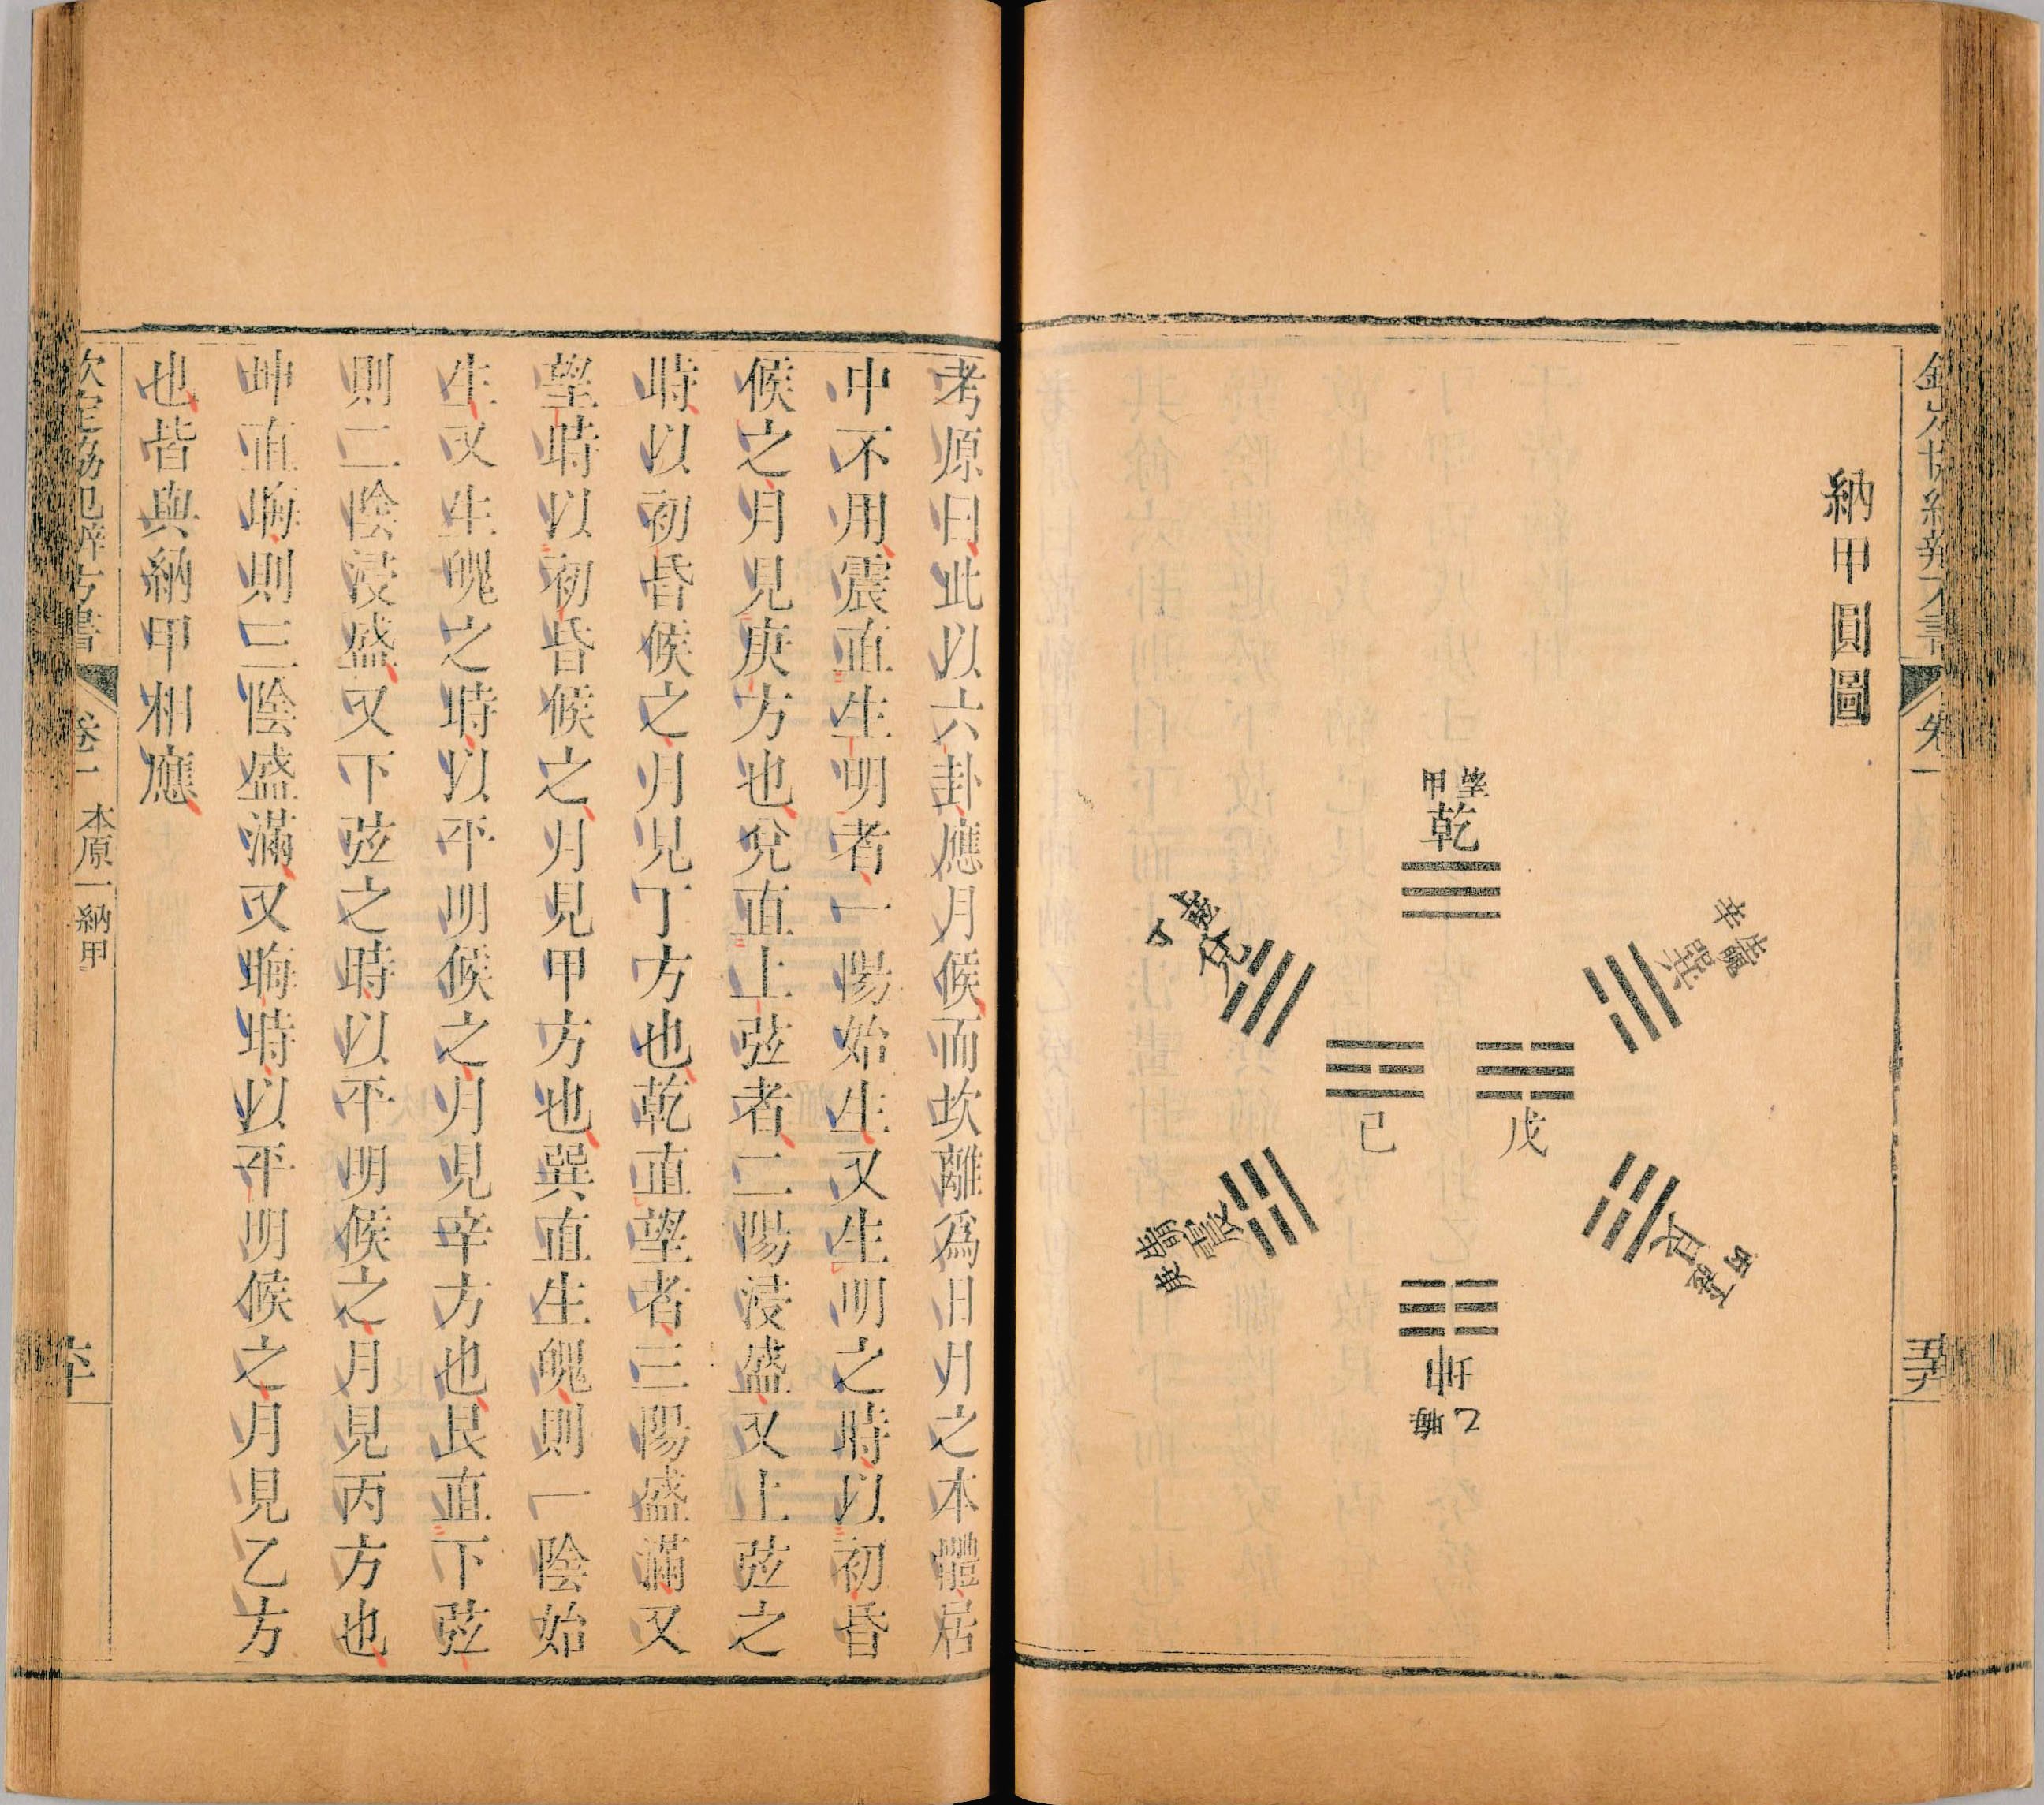 欽定協紀辨方書 卷一
五十九
納甲圓圖
望甲
乾
生魄辛
巽
上弦丁
兌
戊
己
下弦丙
艮
生明庚
震
坤
乙晦
考原曰此以六卦應月候而坎離爲日月之本體居
中不用震直生明者一陽始生又生明之時以初昏
候之月見庚方也兌直上弦者二陽浸盛又上弦之
時以初昏候之月見丁方也乾直望者三陽盛滿又
望時以初昏候之月見甲方也巽直生魄則一陰始
生又生魄之時以平明候之月見辛方也艮直下弦
則二陰浸盛又下弦之時以平明候之月見丙方也
坤直晦則三陰盛滿又晦時以平明候之月見乙方
也皆與納甲相應
欽定協紀辨方書 卷一 本原一 納甲
六十